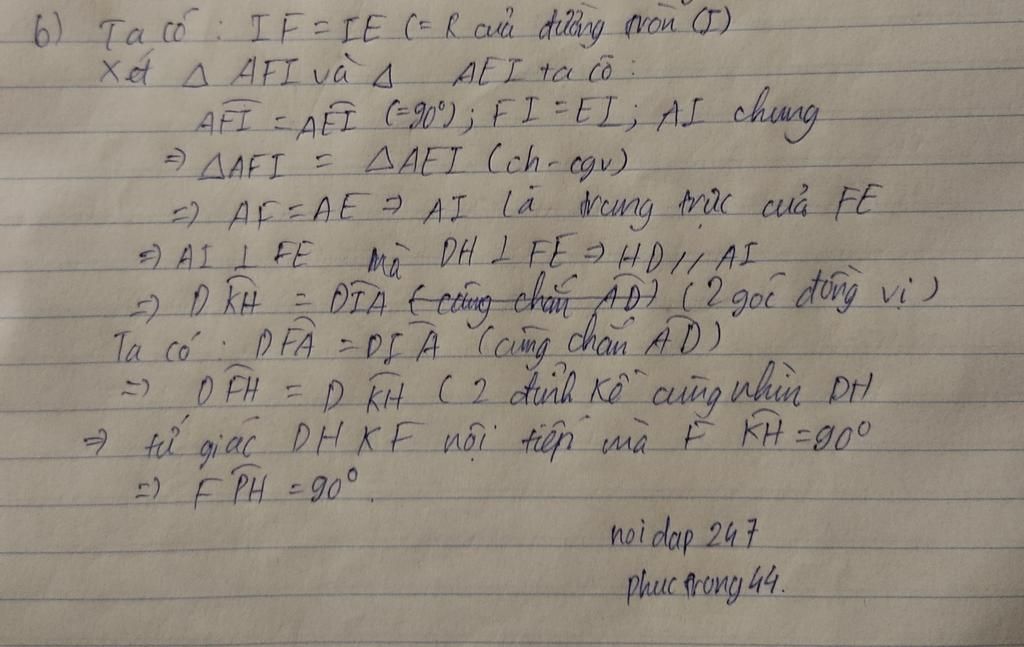 b) Ta có : IF = IE (= R của đường tròn (I)
Xét △ AFI và △ AEI ta có :
AFI = AEI (=90°) ; FI = EI ; AI chung
=> △AFI = △AEI (ch-cgv)
=> AF = AE => AI là trung trực của FE
=> AI ⊥ FE mà DH ⊥ FE => HD // AI
=> DKH = DIA (cùng chắn AD) (2 góc đồng vị)
Ta có : DFA = DIA (cùng chắn AD)
=> DFH = DKH ( 2 đỉnh kề cùng nhìn DH
=> tứ giác DHKF nội tiếp mà F KH = 90°
=> F PH = 90°.
noidap 247
phuctrong44.